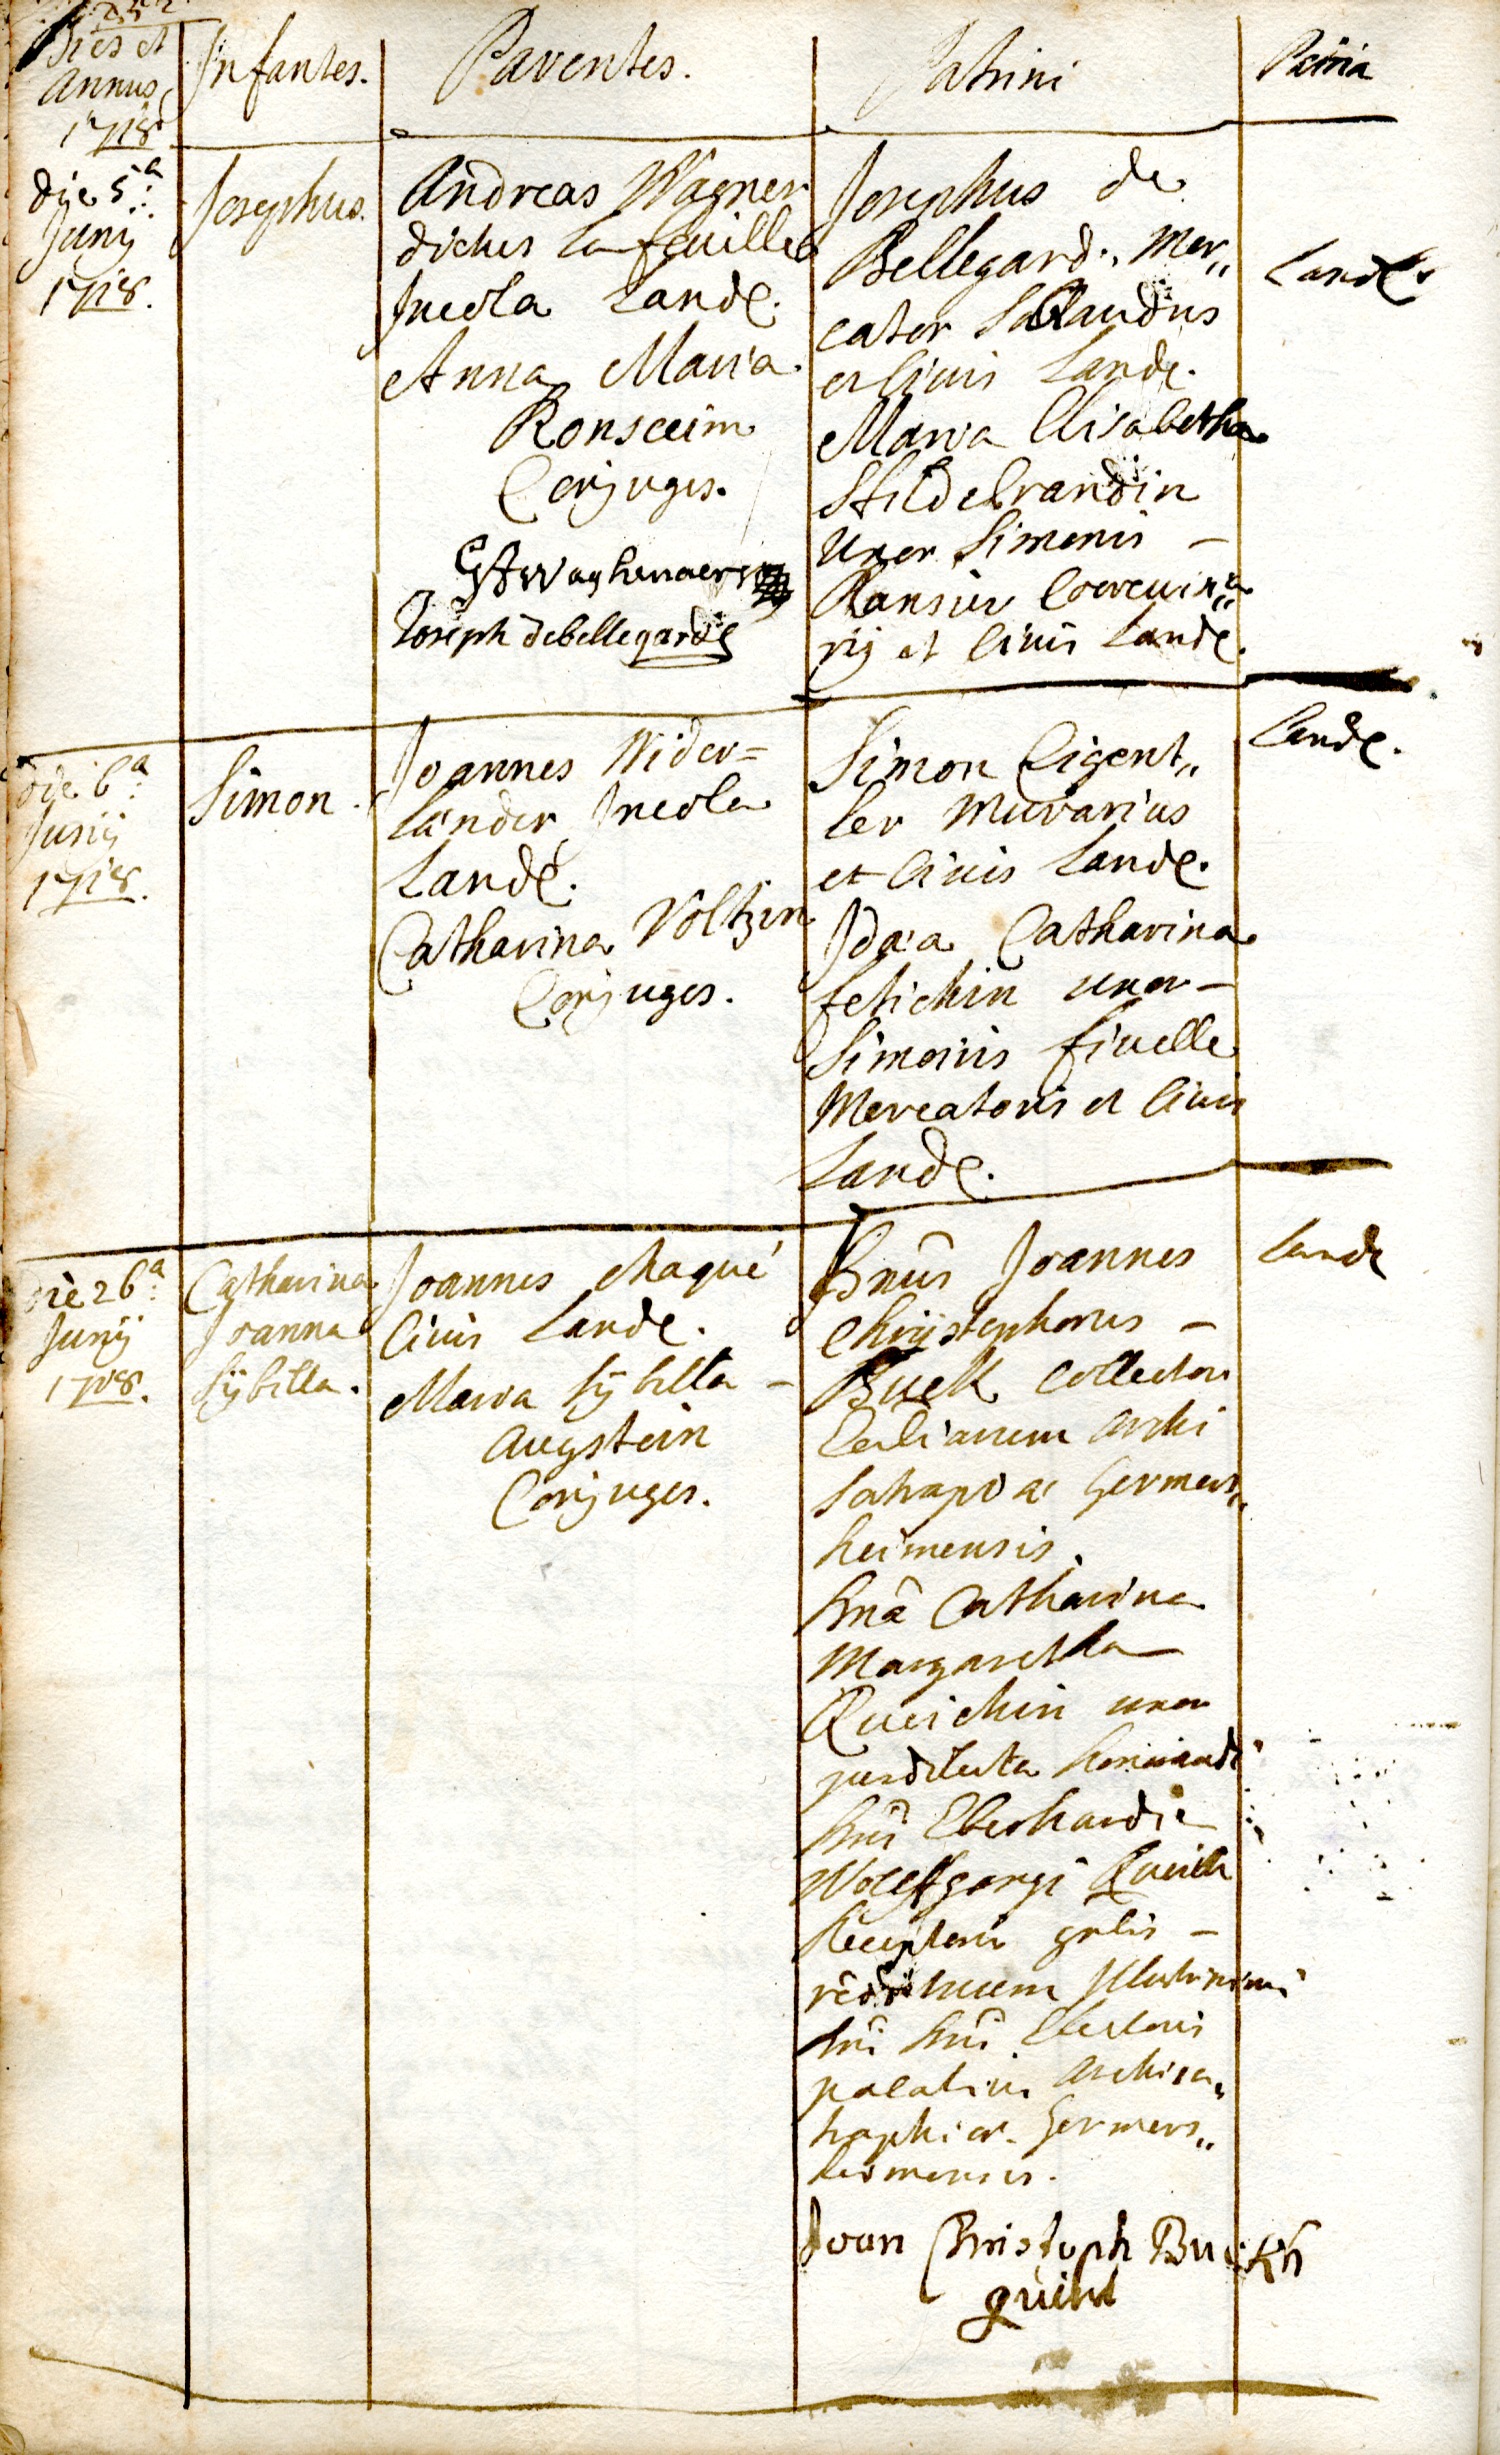 252.
Dies et
Annus
1718
Infantes.
Parentes.
Patrini
Patria
die 5ᵃ:
Junij
1718.
Josephus.
Andreas Wagner
dictus la feuille
Incola Landę.
Anna Maria
Conjuges.
Joseph debellegarde
Josephus de
Bellegard. Mer„
cator
et Civis Landę.
Maria Elisabetha
Hildebrandin
Uxor Simonis –
rij et Civis Landę.
Landę.
die 6ᵃ:
Junij
1718.
Simon.
Joannes Nider=
länder Incola
Landę.
Catharina Voltzin
Conjuges.
Simon Eigent„
ler Murarius
et Civis Landę.
Catharina
fetichin uxor –
Simonis fivelle
Mercatoris et Civis
Landę.
Landę.
die 26ᵃ:
Junij
1718.
Catharina
Joanna
Sÿbilla.
Joannes Maqué
Civis Landę.
Maria Sÿbilla –
Augstein
Conjuges.
Dnus Joannes
Christophorus –
Buck Collector
Archi
Satrapiae Germers„
heimensis.
Dna Catharina
Margaretha
Queichin uxor
Dni Eberhardi
Wolffgangi
Receptoris gnlis –
Dni Dni Electoris
palatini Archisa„
traphiae Germers„
heimensis.
Joan Christoph Buckh
Landę